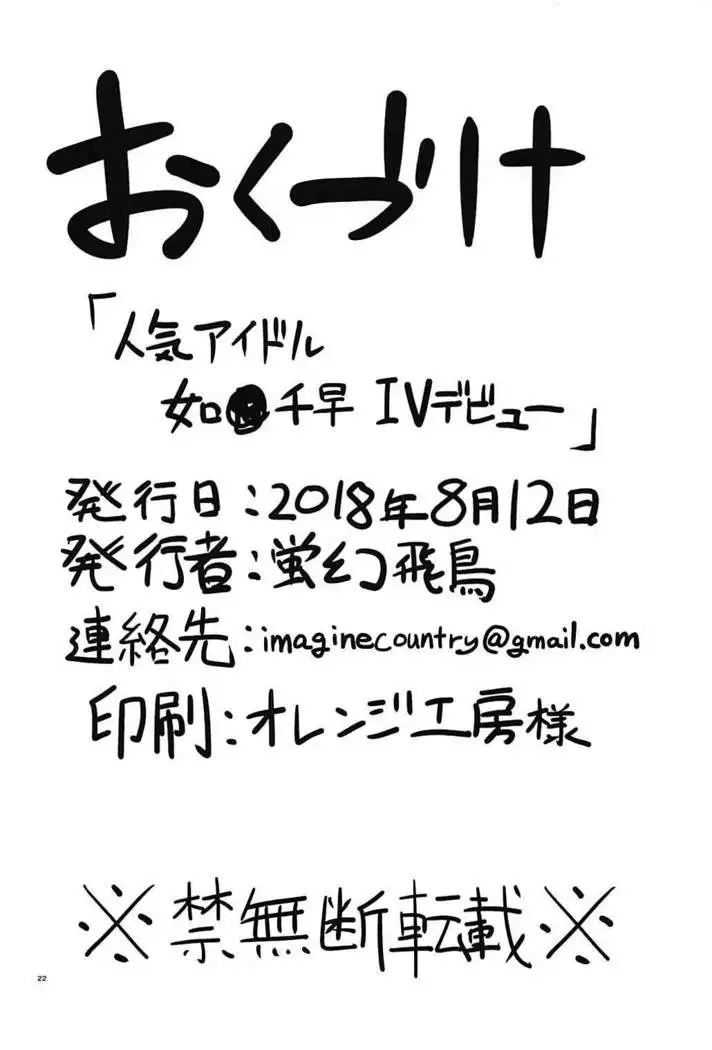 おくづけ
「人気アイドル
如●千早 IVデビュー」
発行日:2018年8月12日
発行者:蛍幻飛鳥
連絡先:imaginecountry@gmail.com
印刷:オレンジ工房様
※禁無断転載※
22